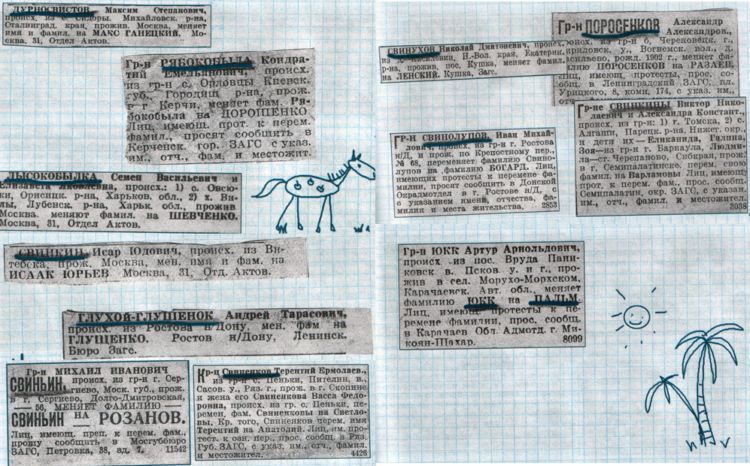 ДУРНОСВИСТОВ Максим Степанович,
Сталинград. края, прожив. Москва, меняет
имя и фамил. на МАКС ГАНЕЦКИЙ, Мо-
сква, 31, Отдел Актов.
Гр-н РЯБОКОБЫЛА Кондра-
тий Емельянович, происх.
из гр-н с. Орловцы Киевск.
губ., Городищ. р-на, прож.
в г. Керчи, меняет фам. Ря-
бокобыла на ДОРОШЕНКО.
Лиц, имеющ. прот. к перем.
фамил., просят сообщить в
Керченск. гор. ЗАГС с указ.
им., отч., фам. и местожит.
ЛЫСОКОБЫЛКА Семен Васильевич и
Елизавета Яковлевна, происх.: 1) с. Овсю-
ки, Оржицк. р-на, Харьков. обл., 2) х. Ви-
лы, Лубенск. р-на, Харьк. обл., прожив.
Москва, меняют фамил. на ШЕВЧЕНКО.
Москва, 31, Отдел Актов.
Исар Юдович, происх. из Ви-
тебска, прож. Москва, мен. имя и фам. на
ИСААК ЮРЬЕВ Москва, 31, Отд. Актов.
ГЛУХОЙ-ГЛУЩЕНОК Андрей Тарасович,
происх. из Ростова н/Дону, мен. фам на
ГЛУЩЕНКО. Ростов н/Дону, Ленинск.
Бюро Загс.
Гр-н МИХАИЛ ИВАНОВИЧ
СВИНЬИН, происх. из гр-н г. Сер-
гиево, Моск. губ., прож.
в г. Сергиево, Долго-Дмитровская,
— 56, МЕНЯЕТ ФАМИЛИЮ —
СВИНЬИН НА РОЗАНОВ.
Лиц, имеющ. преп. к перем. фам.,
прошу сообщить в Мосгубюро
ЗАГС, Петровка, 38, зд. 7. 11542
Кр-н Свиненков Терентий Ермолаев.,
из гр-н с. Пеньки, Пителин. в.,
Сасов. у., Ряз. г., прож. в г. Скопине
и жена его Свиненкова Васса Федо-
ровна, происх. из гр. с. Пеньки, пе-
ремен. фам. Свиненковы на Светло-
вы, Кр. того, Свиненков черем. имя
Терентий на Анатолий. Лиц, им. прo-
тест. к озн. пер., прос. сообщ. в Ряз.
Губ. ЗАГС, с указ. им., отч., фамил.
и местожител. 4426
СВИНУХОВ Николай Дмитриевич, происх.
р-на, прожив. пос. Кушка, меняет фамил.
на ЛЕНСКИЙ. Кушка, Загс.
Гр-н ПОРОСЕНКОВ Александр
Александров.,
происх. из гр-н б. Череповецк. г.,
рожд. 1902 г., меняет фа-
милию ПОРОСЕНКОВ на РАЗЛЕЙ.
Лиц, имеющ. протесты, прос. со-
общ. в Ленинградский ЗАГС, пл.
Урицкого, 8, комн. 174, с указ. им.,
Гр-н СВИНОЛУПОВ, Иван Михай-
лов., происх. из гр-н г. Ростова
н/Д, и прож. по Крепостному пер.
№ 68, переменяет фамилию Свино-
лупов на фамилию БОГАРД. Лиц,
имеющих протесты к перемене фа-
милии, просят сообщить в Донской
Окрадмотдел в г. Ростове н/Д, с
указанием имени, отчества, фа-
милии и места жительства. 2853
Гр-не СВИНКИНЫ Виктор Нико-
лаевич и Александра Констант.,
происх. из гр-н: 1) г. Томска, 2) с.
и дети их — Елизавета, Галина,
Зоя — из гр-н г. Барнаула, Людми-
ла — ст. Черепаново, Сибкрая, прож.
в г. Семипалатинске, перем. свою
фамил. на Варламовы. Лиц, имеющ.
прот. к перем. фам., прос. сообщ.
Семипалатин. окр. ЗАГС, с указан.
им., отч., фамил. и местожител.
Гр-н ЮКК Артур Арнольдович,
происх. из пос. Вруда Пани-
ковск. в. Псков. у. и г., про-
жив в сел. Морухо-Морхском,
Карачаевск. Авт. обл., меняет
фамилию ЮКК на ПАЛЬМ.
Лиц, имеющ. протесты к пе-
ремене фамилии, прос. сообщ.
в Карачаев Обл. Адмотд. г. Ми-
коян-Шахар. 8099